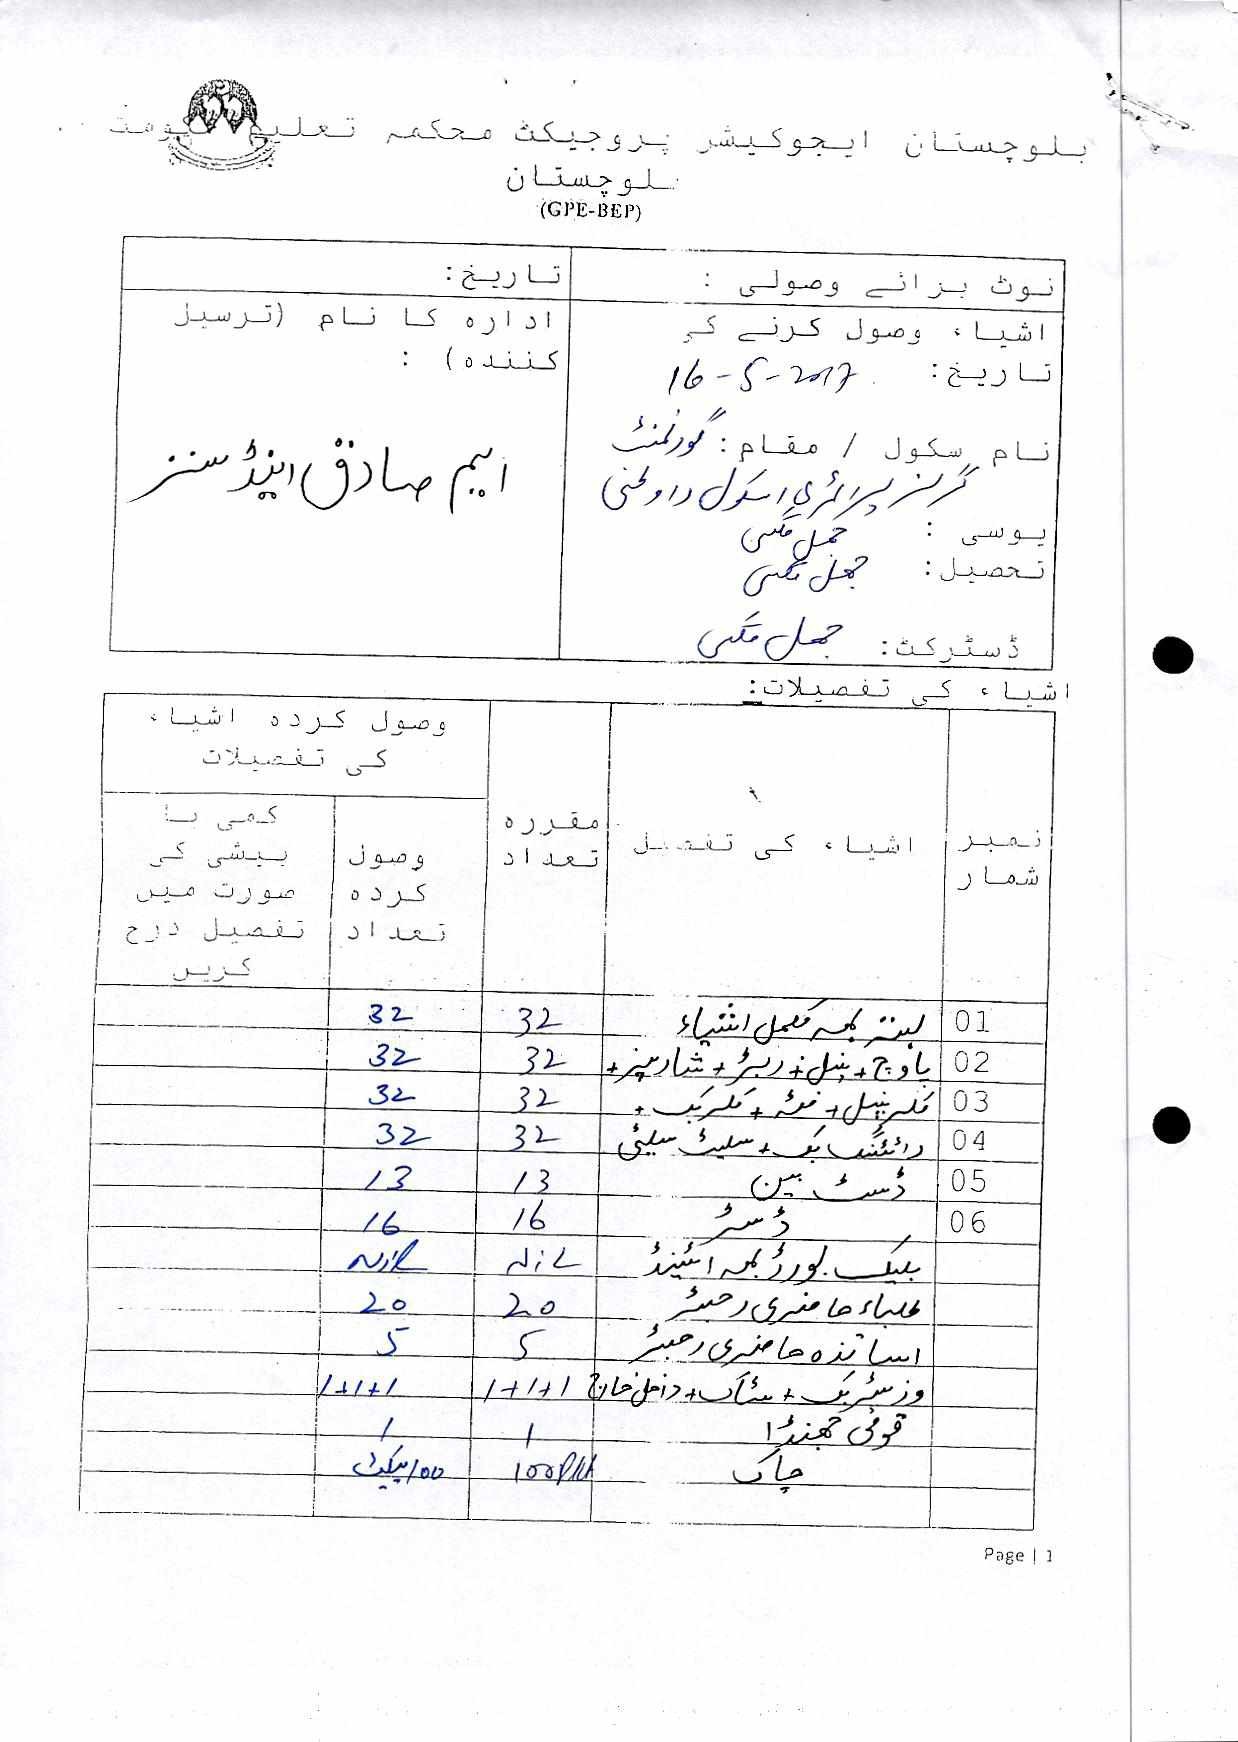 بلوچستان ایجوکیشر پروجیکٹ محکمہ تعلیم
بلوچستان
(GPE-BEP)
نوٹ برائے وصولی :
تاریخ:
اشیاء وصول کرنے کی
تاریخ: 16-5-2017
نام سکول / مقام: گورنمنٹ
گرلز پرائمری اسکول
یوسی : جھل مگسی
تحصیل: جھل مگسی
ڈسٹرکٹ: جھل مگسی
ادارہ کا نام (ترسیل
کنندہ) :
ایم صادق اینڈ سنز
اشیاء کی تفصیلات:
نمبر شمار
اشیاء کی تفصیل
مقررہ تعداد
وصول کردہ اشیاء کی تفصیلات
وصول کردہ تعداد
کمی یا بیشی کی صورت میں تفصیل درج کریں
01 بستہ بمعہ مکمل اشیاء 32 32
02 پاوچ + پنسل + ربڑ + شارپنر + 32 32
03 کلر پنسل + فٹہ + کلر بک + 32 32
04 رائٹنگ بک + سلیٹ سلیٹی 32 32
05 ڈسٹ بین 13 13
06 ڈسٹر 16 16
بلیک بورڈ بمعہ اسٹینڈ Nil Nil
طلباء حاضری رجسٹر 20 20
اساتذہ حاضری رجسٹر 5 5
وزیٹر بک + سٹاک + داخل خارج 1+1+1 1+1+1
قومی جھنڈا 1 1
چاک 100 100 پیکٹ
Page | 1